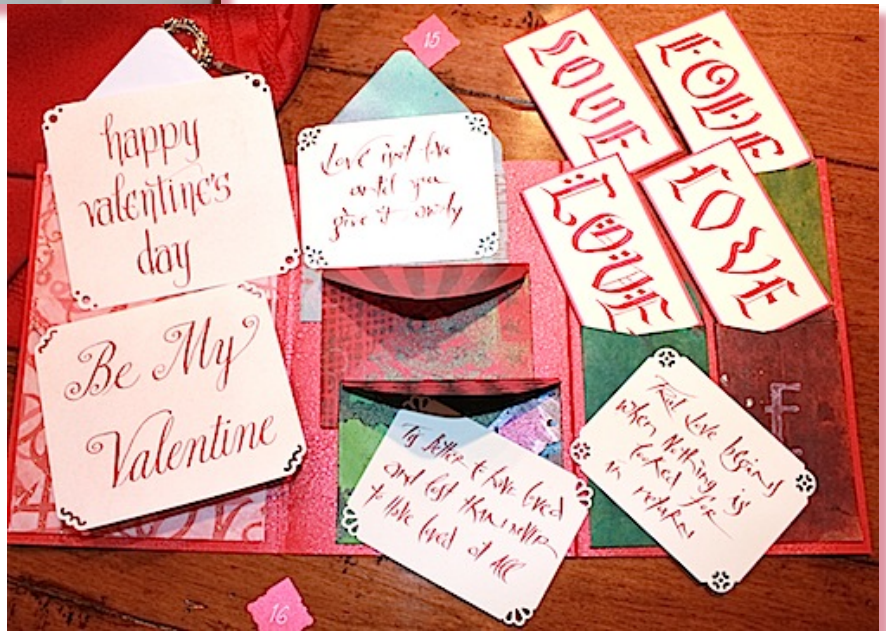 happy
valentine's
day
15
Love isn't love
until you
give it away
LOVE
LOVE
LOVE
LOVE
Be My
Valentine
Tis Better to have loved
and lost than never
to have loved at All
True love begins
when Nothing is
looked for
in return
16